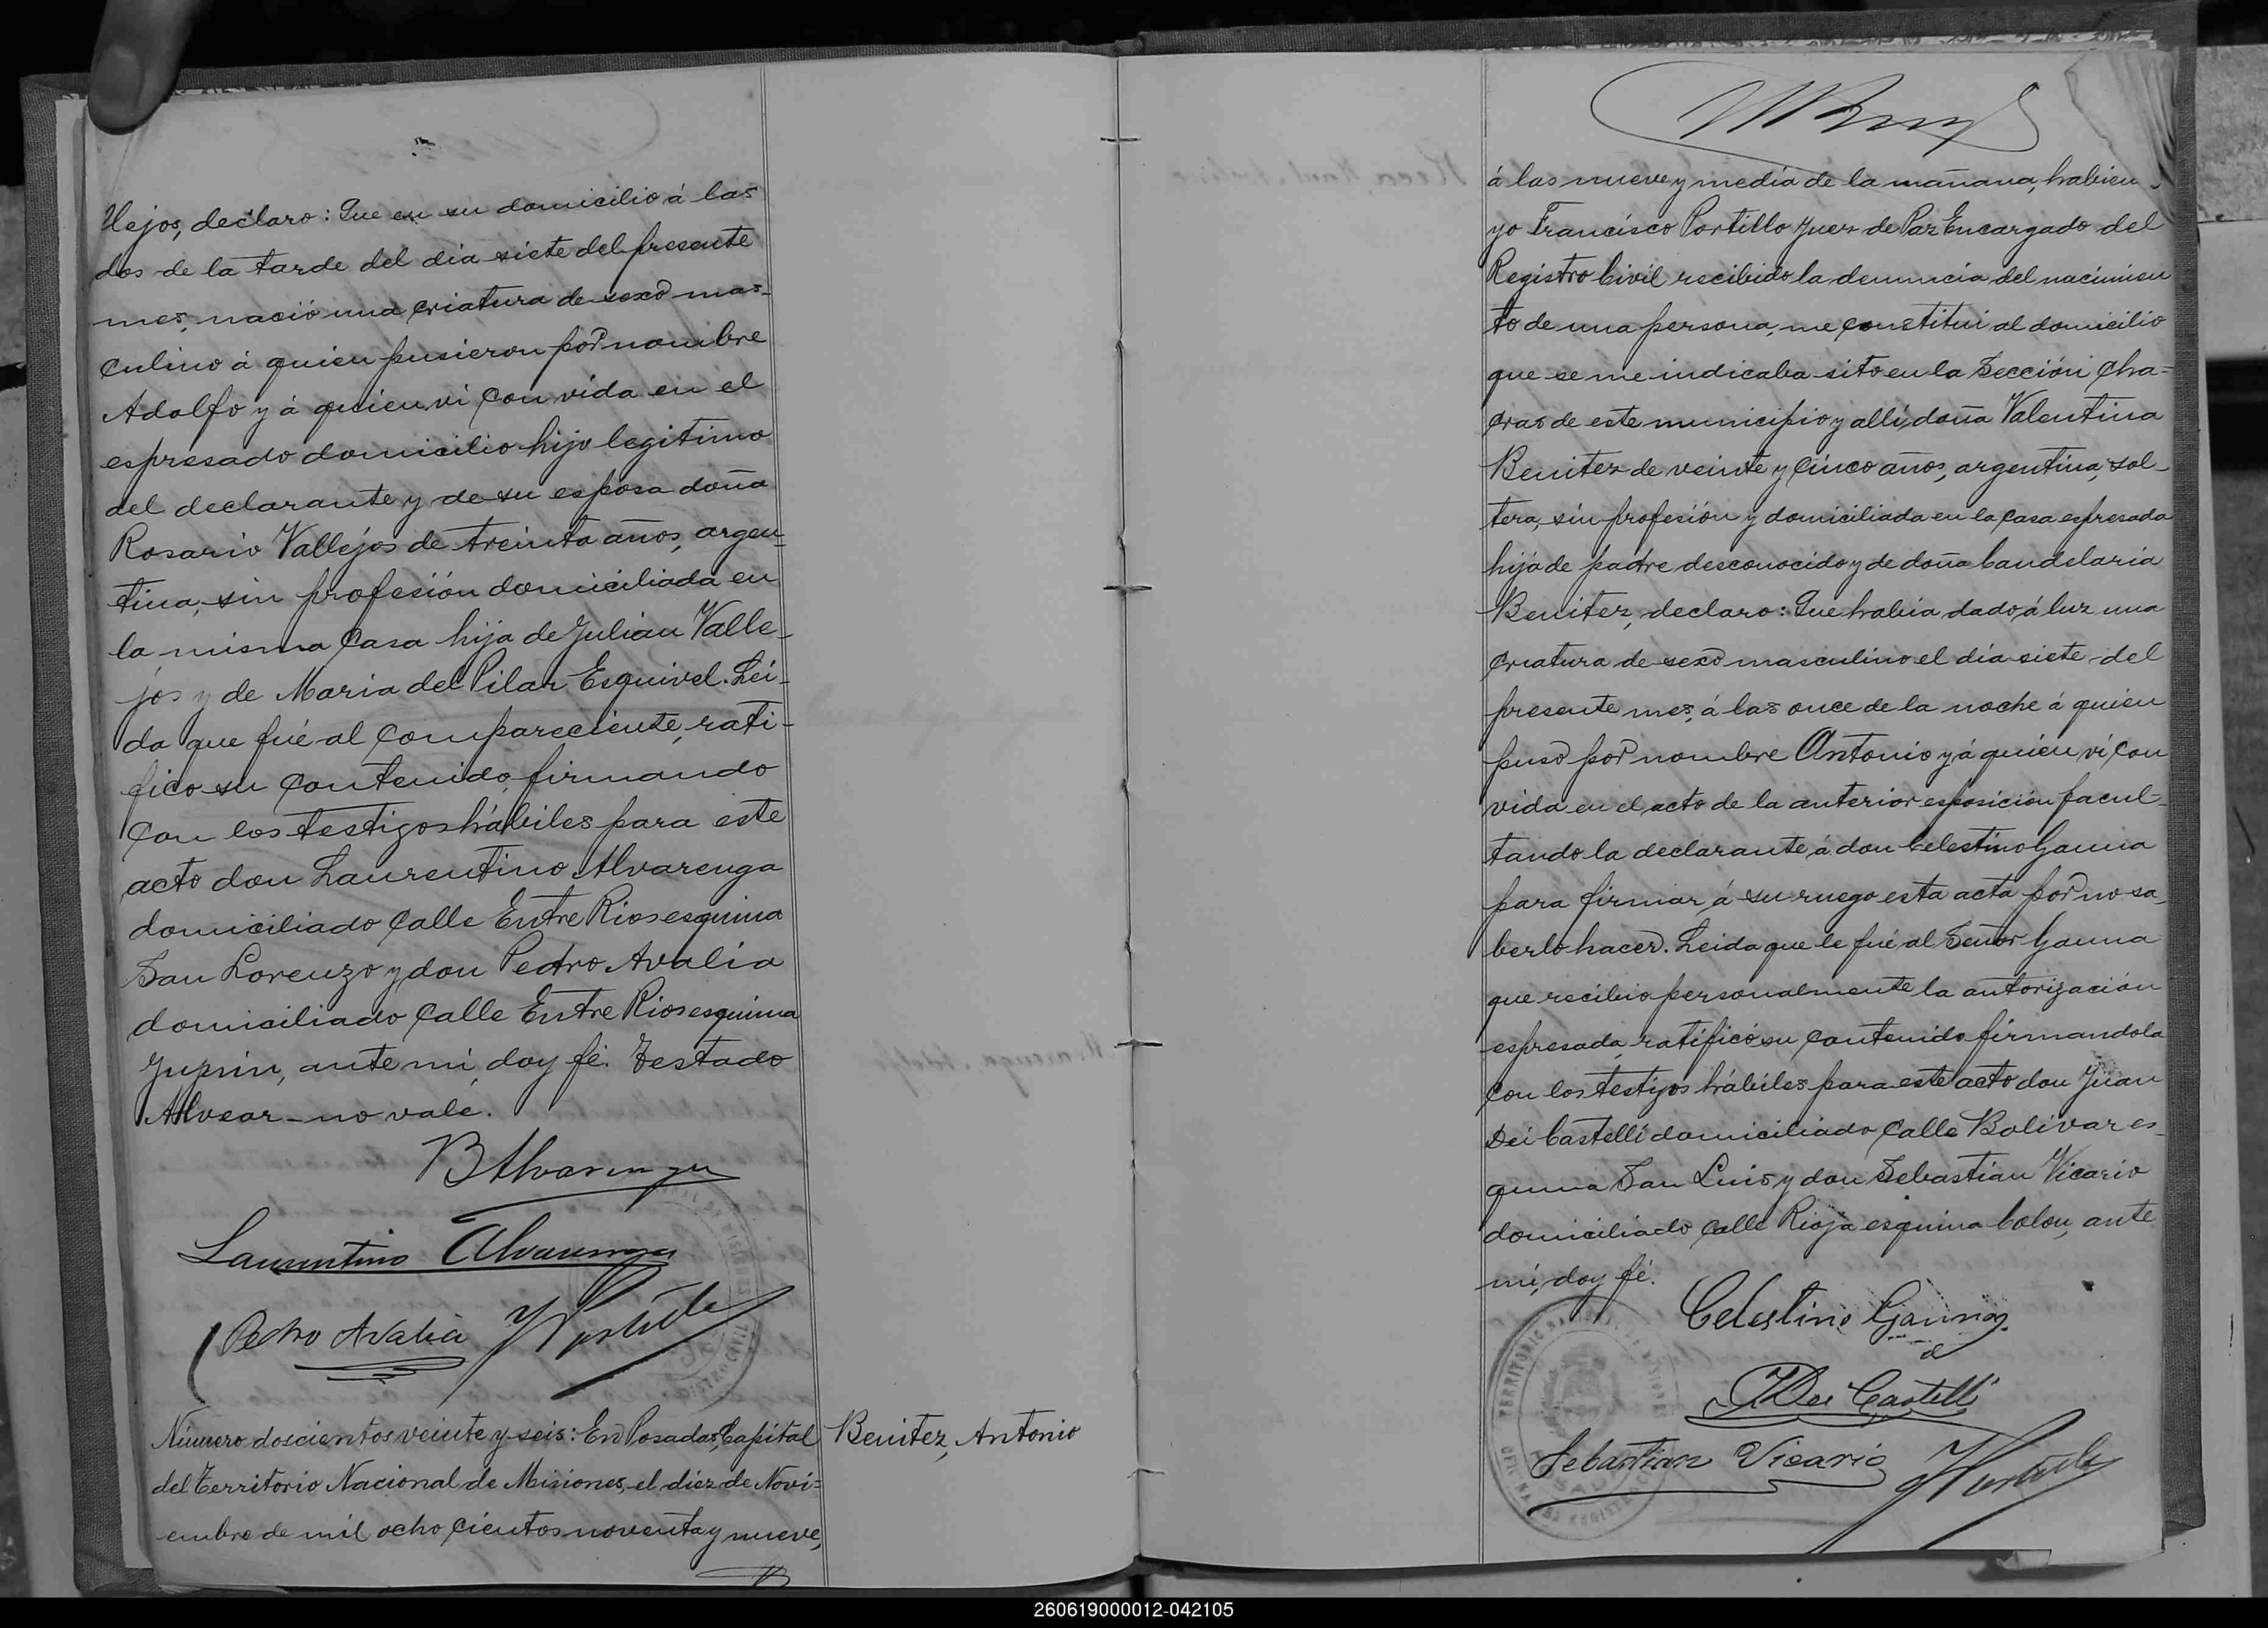 llejos, declaro: Que en su domicilio á las
dos de la tarde del dia siete del presente
mes, nació una criatura de sexo mas-
culino á quien pusieron por nombre
Adolfo y á quien vi con vida en el
espresado domicilio hijo legitimo
del declarante y de su esposa doña
Rosario Vallejos de treinta años, argen-
tina, sin profesión domiciliada en
la misma casa hija de Julián Valle-
jos y de Maria del Pilar Esquivel. Lei-
da que fué al compareciente, rati-
fico su contenido, firmando
con los testigos hábiles para este
acto don Laurentino Alvarenga
domiciliado calle Entre Rios esquina
San Lorenzo y don Pedro Avalia
domiciliado calle Entre Rios esquina
Junin, ante mi, doy fé. Testado
Alvear - no vale.
B Alvarenga
Laurentino Alvarenga
Pedro Avalia
Número doscientos veinte y seis: En Posadas, Capital
del Territorio Nacional de Misiones, el diez de Novi=
embre de mil ocho cientos noventa y nueve,
Benitez, Antonio
á las nueve y media de la mañana, habien
yo Francisco Portillo Juez de Paz Encargado del
Registro Civil recibido la denuncia del nacimien
to de una persona, me constitui al domicilio
que se me indicaba sito en la Sección Cha=
cras de este municipio y allí, doña Valentina
Benitez de veinte y cinco años, argentina, sol-
tera, sin profesión y domiciliada en la casa espresada
hija de padre desconocido y de doña Candelaria
Benitez, declaro: Que habia dado á luz una
criatura de sexo masculino el día siete del
presente mes, á las once de la noche á quien
puso por nombre Antonio y á quien ví con
vida en el acto de la anterior esposición facul-
tando la declarante, á don Celestino Gauna
para firmar, á su ruego esta acta por no sa-
berlo hacer. Leida que le fué al Señor Gauna
que recibio personalmente la autorización
espresada, ratificó su contenido firmandola
con los testigos hábiles para este acto don Juan
Dei Castelli domiciliado calle Bolivar es-
quina San Luis y don Sebastian Vicario
domiciliado calle Rioja esquina Colon, ante
mi, doy fé.
Celestino Gauna
J Dei Castelli
Sebastian Vicario
260619000012-042105